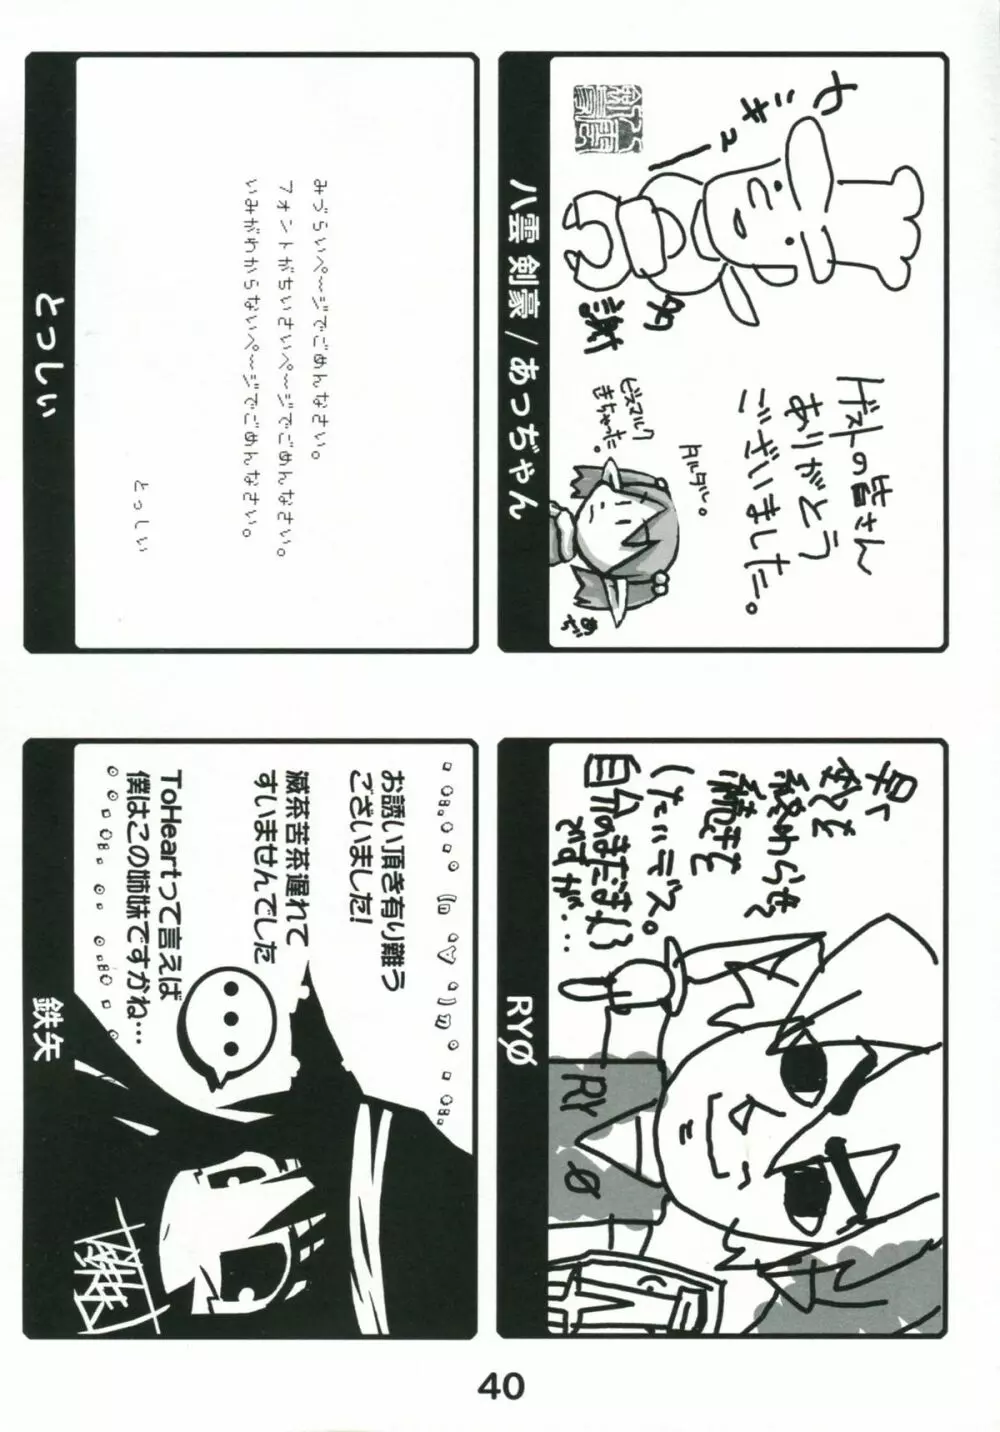 ヤ
ジキュー
多謝
ゲストの皆さん
ありがとう
ございました。
タルタル。
ビスマルク
きちゃった。
八雲剣豪/あっぢゃん
みづらいぺ〜ジでごめんなさい。
フォントがちいさいぺ〜ジでごめんなさい。
いみがわからないぺ〜ジでごめんなさい。
とっしい
とっしぃ
早く
終わらせて
続きを
したいデス。
自分のまだまだ
ですが…
RYØ
RYØ
お誘い頂き有り難う
ございました!
滅茶苦茶遅れて
すいませんでした
ToHeartって言えば
僕はこの姉妹ですかね…
…
鉄矢
40